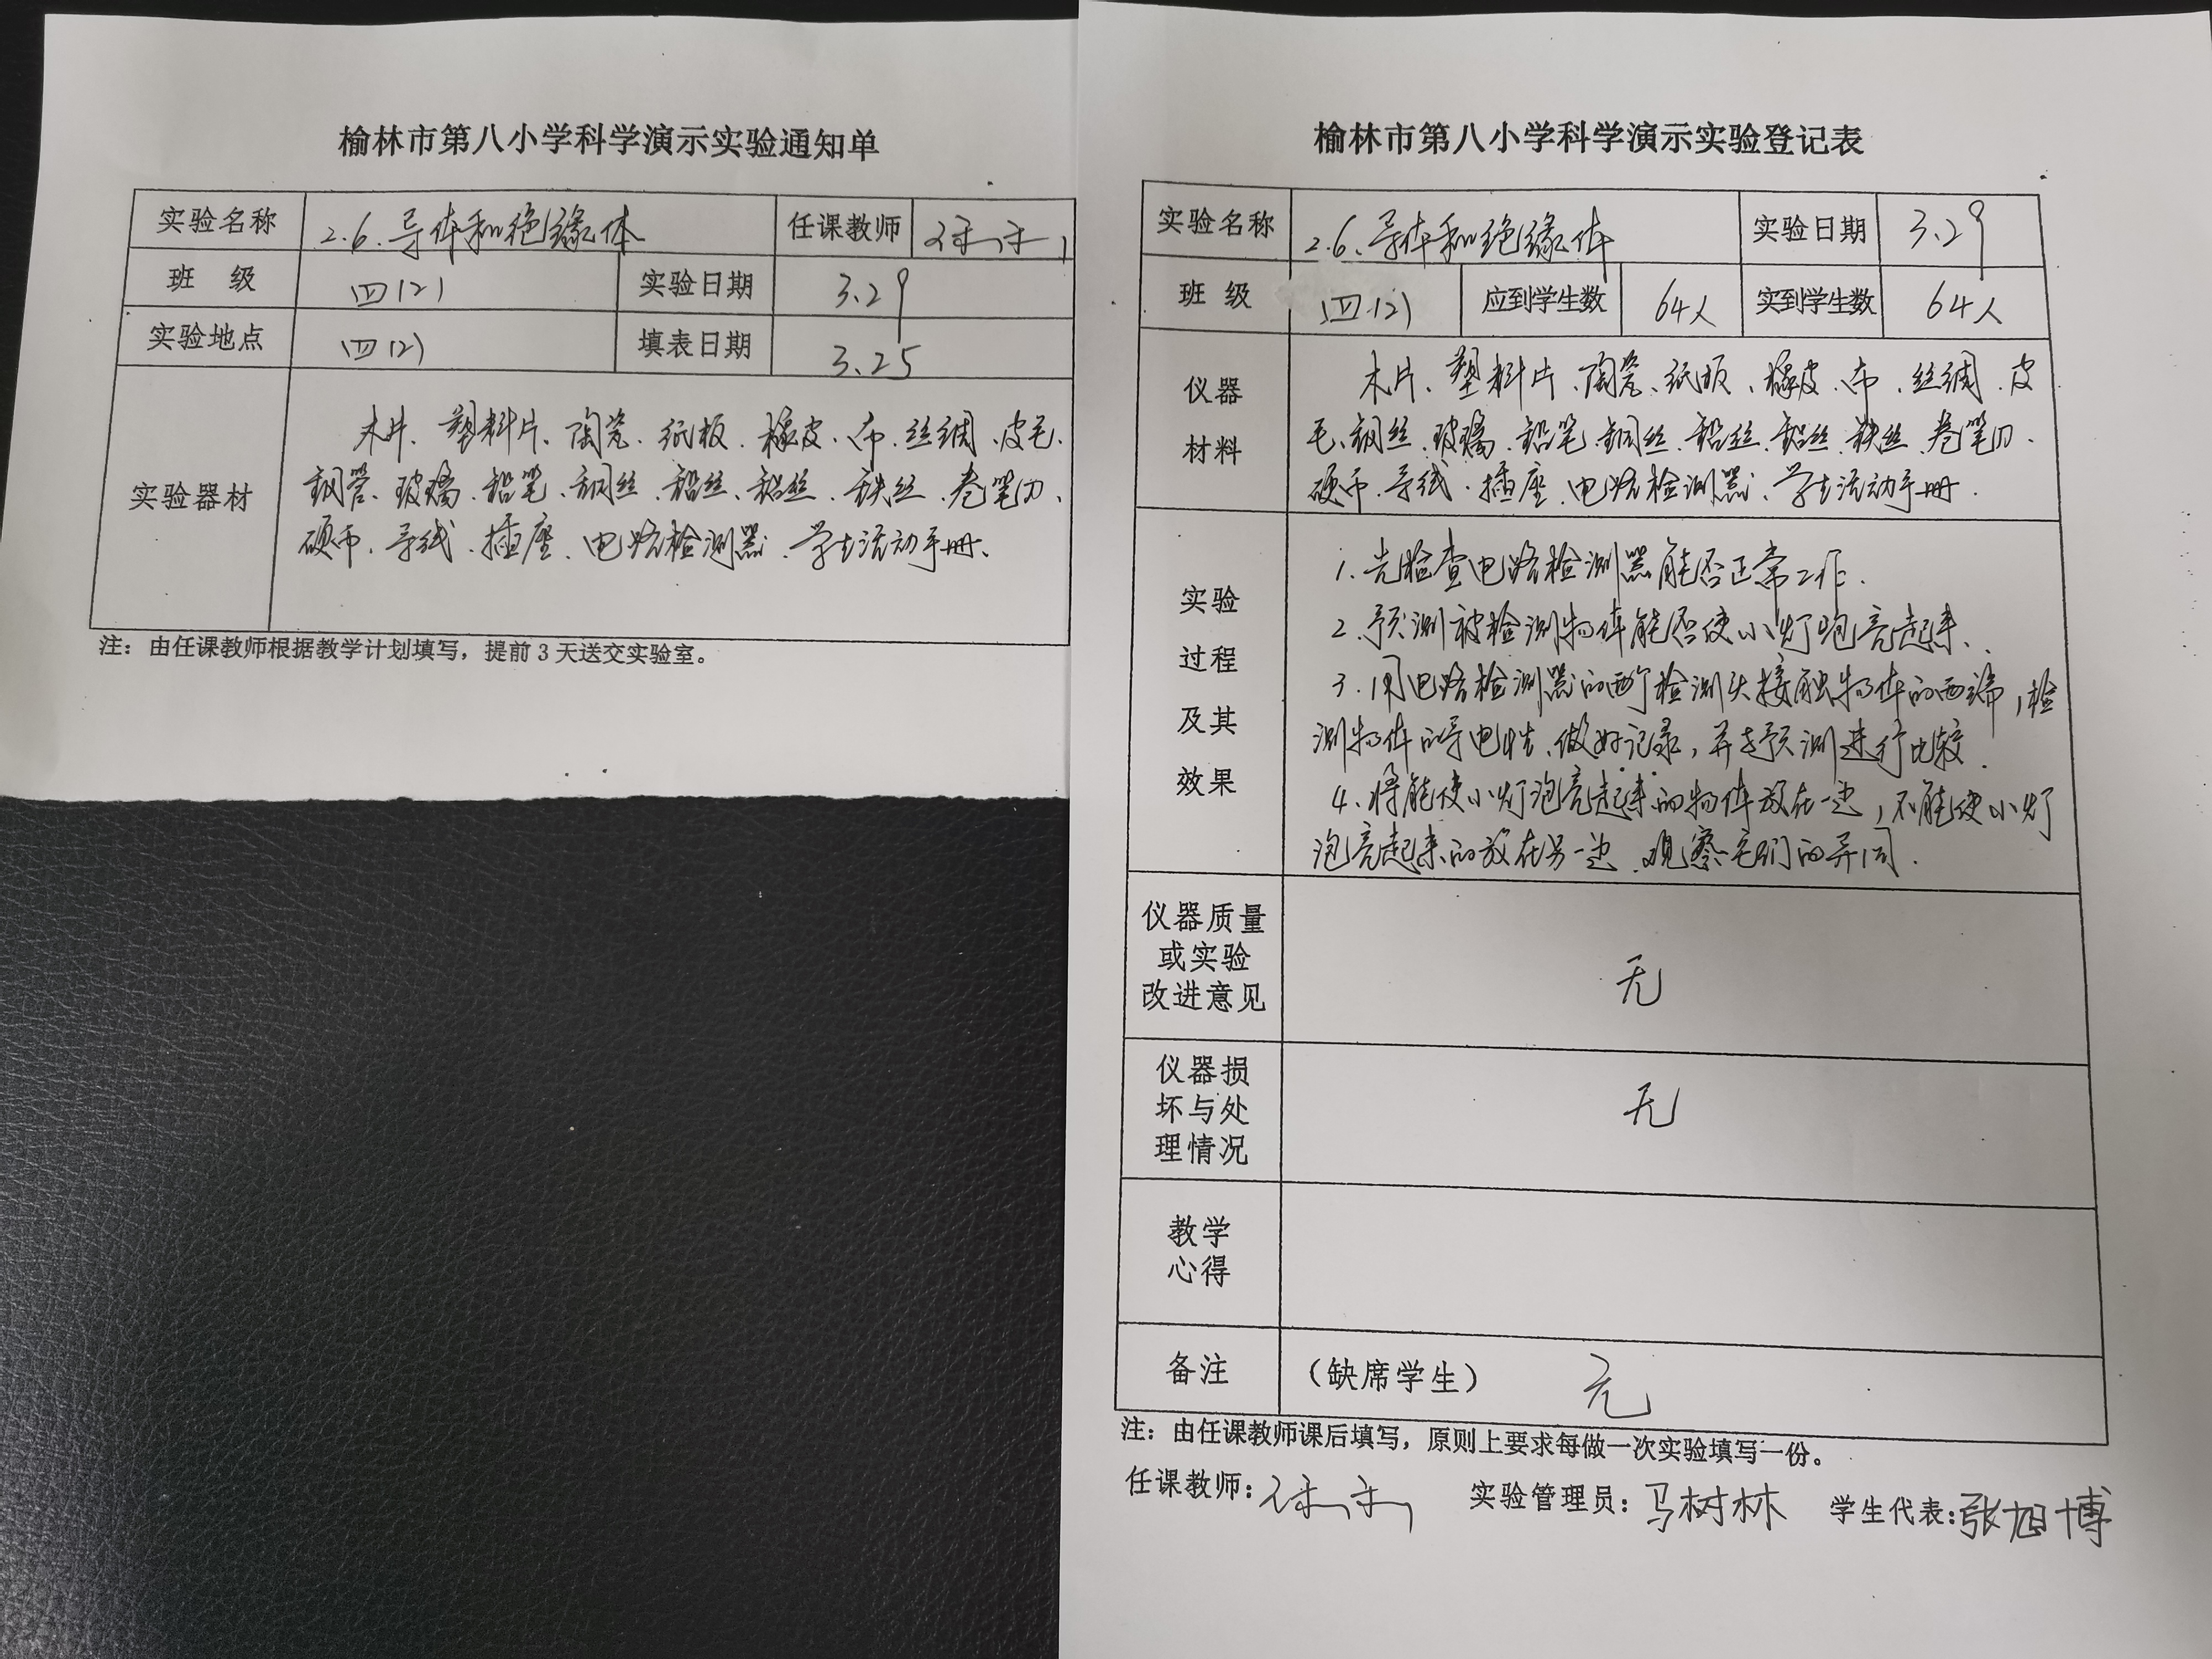 榆林市第八小学科学演示实验通知单
实验名称 2.6、导体和绝缘体 任课教师
班 级 四(2) 实验日期 3.29
实验地点 四(2) 填表日期 3.25
实验器材
木片、塑料片、陶瓷、纸板、橡皮、布、丝绸、皮毛、
钢管、玻璃、铅笔、铜丝、铅丝、铝丝、铁丝、卷笔刀、
硬币、导线、插座、电路检测器、学生活动手册、
注：由任课教师根据教学计划填写，提前3天送交实验室。
榆林市第八小学科学演示实验登记表
实验名称 2.6、导体和绝缘体 实验日期 3.29
班 级 四(2) 应到学生数 64人 实到学生数 64人
仪器
材料
木片、塑料片、陶瓷、纸板、橡皮、布、丝绸、皮
毛、钢丝、玻璃、铅笔、铜丝、铅丝、铝丝、铁丝、卷笔刀、
硬币、导线、插座、电路检测器、学生活动手册.
实验
过程
及其
效果
1.先检查电路检测器能否正常工作.
2.预测被检测物体能否使小灯泡亮起来、
3.用电路检测器的两个检测头接触物体的两端,检
测物体的导电性、做好记录,并与预测进行比较.
4、将能使小灯泡亮起来的物体放在一边,不能使小灯
泡亮起来的放在另一边、观察它们的异同.
仪器质量
或实验
改进意见
无
仪器损
坏与处
理情况
无
教学
心得
备注 （缺席学生） 无
注：由任课教师课后填写，原则上要求每做一次实验填写一份。
任课教师: 实验管理员：马树林 学生代表:张旭博